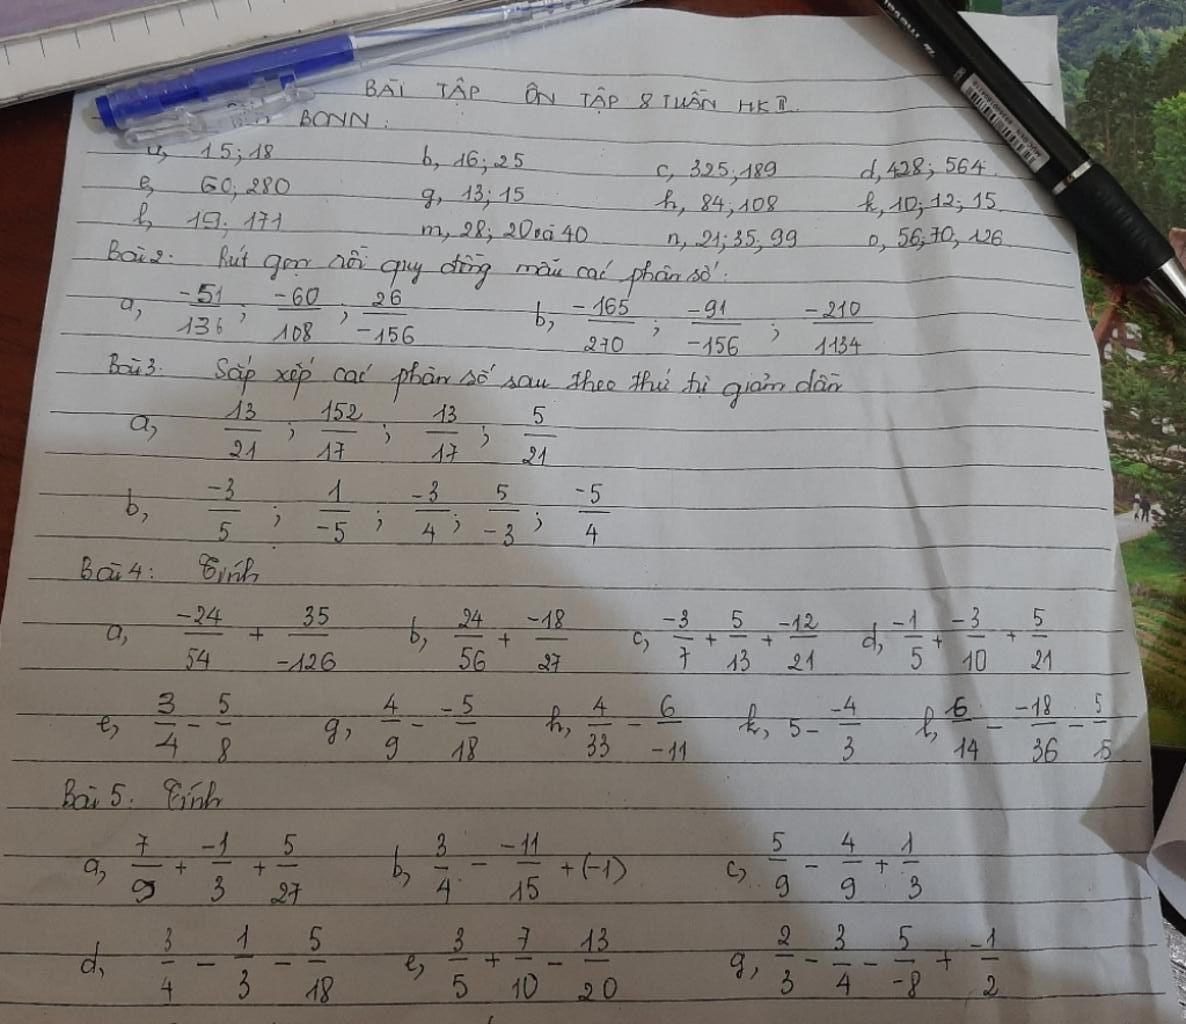 BÀI TẬP ÔN TẬP 8 TUẦN HKII
BCNN:
a, 15; 18 b, 16; 25 c, 325; 189 d, 428; 564
e, 60; 280 g, 13; 15 h, 84; 108 k, 10; 12; 15
l, 19; 171 m, 28; 20 và 40 n, 21; 35; 99 o, 56; 70; 126
Bài 2: Rút gọn rồi quy đồng mẫu các phân số:
a, -51/136; -60/108; 26/-156 b, -165/270; -91/-156; -210/1134
Bài 3. Sắp xếp các phân số sau theo thứ tự giảm dần
a, 13/21; 152/17; 13/17; 5/21
b, -3/5; 1/-5; -3/4; 5/-3; -5/4
Bài 4: Tính
a, -24/54 + 35/-126 b, 24/56 + -18/27 c, -3/7 + 5/13 + -12/21 d, -1/5 + -3/10 + 5/21
e, 3/4 - 5/8 g, 4/9 - -5/18 h, 4/33 - 6/-11 k, 5 - -4/3 l, 6/14 - -18/36 - 5/15
Bài 5: Tính
a, 7/9 + -1/3 + 5/27 b, 3/4 - -11/15 + (-1) c, 5/9 - 4/9 + 1/3
d, 3/4 - 1/3 - 5/18 e, 3/5 + 7/10 - 13/20 g, 2/3 - 3/4 - 5/-8 + -1/2